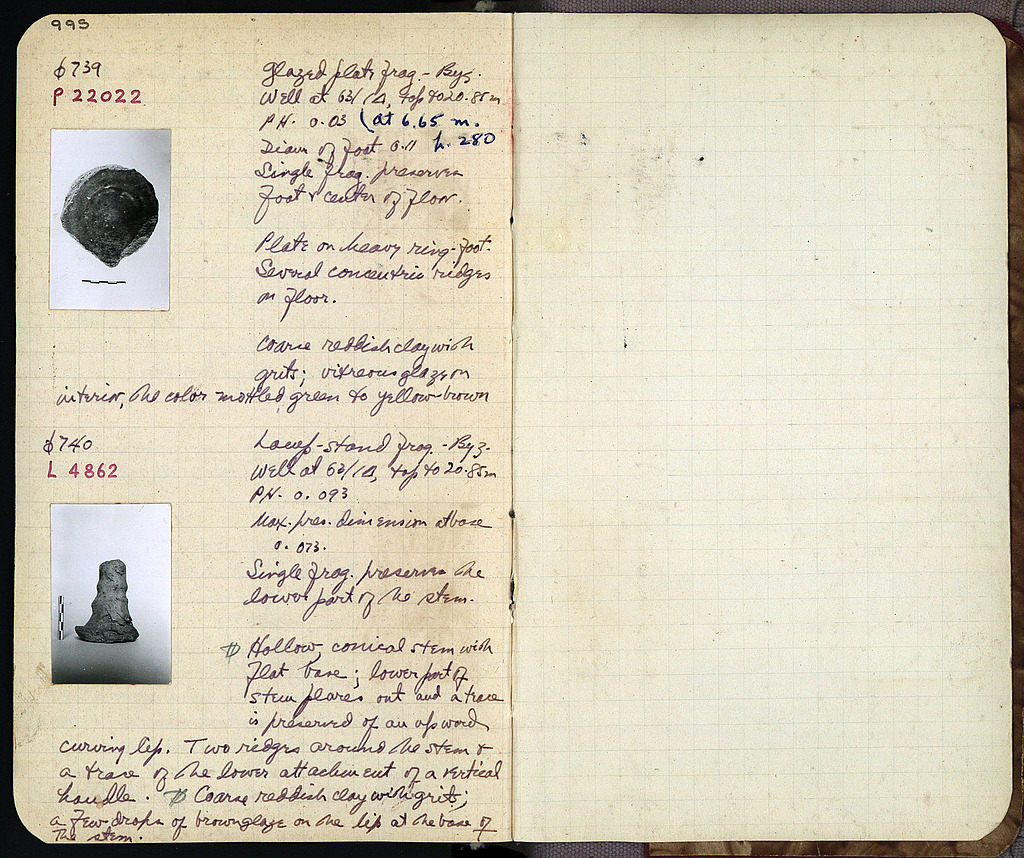 995
φ739
P 22022
Glazed plate frag. - Byz.
Well at 63/ΙΔ, top to 20.85m
PH. 0.03 (at 6.65 m.
Diam of foot 0.11 p. 280
Single frag. preserves
foot & center of floor.
Plate on heavy ring-foot.
Several concentric ridges
on floor.
Coarse reddish clay with
grits; vitreous glaze on
interior, the color mottled green to yellow-brown
φ740
L 4862
Lamp-stand frag. - Byz.
Well at 63/ΙΔ, top to 20.85m
PH. 0.093
Max. pres. dimension at base
0.073.
Single frag. preserves the
lower part of the stem.
¶ Hollow, conical stem with
flat base; lower part of
stem flares out and a trace
is preserved of an upward
curving lip. Two ridges around the stem &
a trace of the lower attachment of a vertical
handle. ¶ Coarse reddish clay with grits;
a few drops of brown glaze on the lip at the base of
the stem.